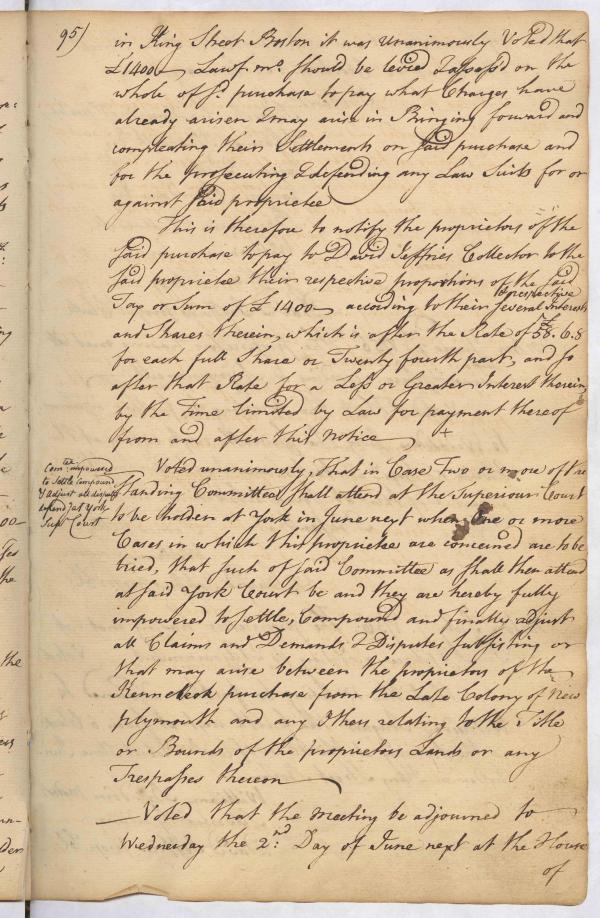 95)
in King Street Boston it was unanimously Voted that
£1400 – Lawf. mo. should be levied & assess'd on the
whole of sd. purchase to pay what Charges have
already arisen & may arise in Bringing forward and
compleating their Settlements on said purchase and
for the prosecuting & defending any Law Suits for or
against said proprietee
This is therefore to notify the proprietors of the
said purchase to pay to David Jeffries Collector to the
said proprietee their respective proportions of the said
Tax or Sum of £1400 – according to their respective several Interests
and Shares therein, which is after the Rate of £58.6.8
for each full Share or Twenty fourth part, and so
after that Rate for a Less or Greater Interest therein,
by the Time limited by Law for payment thereof
from and after this notice
Comtee impowered
to Settle Compound
& adjust all disputes
depend.g at York
Supr. Court
Voted unanimously, That in Case Two or more of the
Standing Committee shall attend at the Superiour Court
to be holden at York in June next when One or more
Cases in which this proprietee are concerned are to be
tried, that such of said Committee as shall then attend
at said York Court be and they are hereby fully
impowered to settle, Compound and finally adjust
all Claims and Demands & Disputes subsisting or
that may arise between the proprietors of the
Kennebeck purchase from the Late Colony of New
plymouth and any others relating to the Title
or Bounds of the proprietors Lands or any
Trespasses thereon
Voted that the meeting be adjourned to
Wednesday the 2nd. Day of June next at the House
of